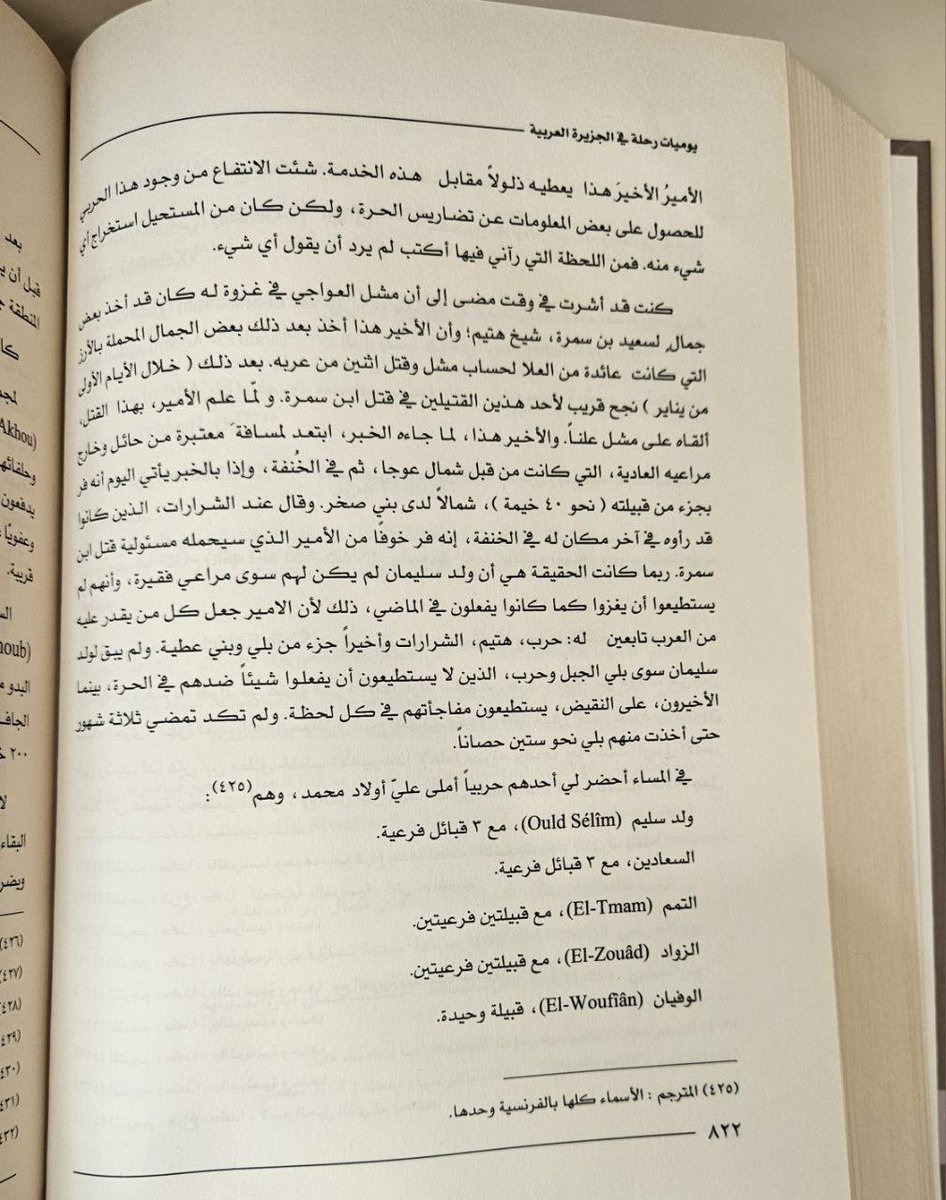 يوميات رحلة في الجزيرة العربية
الأميرُ الأخيرَ هذا يعطيه ذلولاً مقابل هذه الخدمة. شئت الانتفاع من وجود هذا الحربي
للحصول على بعض المعلومات عن تضاريس الحرة، ولكن كان من المستحيل استخراج أي
شيء منه. فمن اللحظة التي رآني فيها أكتب لم يرد أن يقول أي شيء.
كنت قد أشرت في وقت مضى إلى أن مشل العواجي في غزوة له كان قد أخذ بعض
جمالٍ لسعيد بن سمرة، شيخ هتيم؛ وأن الأخير هذا أخذ بعد ذلك بعض الجمال المحملة بالأرز
التي كانت عائدة من العلا لحساب مشل وقتل اثنين من عربه. بعد ذلك ( خلال الأيام الأولى
من يناير ) نجح قريب لأحد هذين القتيلين في قتل ابن سمرة. و لمّا علم الأمير، بهذا القتل،
ألقاه على مشل علناً. والأخير هذا، لما جاءه الخبر، ابتعد لمسافةَ معتبرة من حائل وخارج
مراعيه العادية، التي كانت من قبل شمال عوجا، ثم في الخُنفة، وإذا بالخبر يأتي اليوم أنه فر
بجزء من قبيلته ( نحو ٤٠ خيمة )، شمالاً لدى بني صخر. وقال عند الشرارات، الذين كانوا
قد رأوه في آخر مكان له في الخنفة، إنه فر خوفًا من الأمير الذي سيحمله مسئولية قتل ابن
سمرة. ربما كانت الحقيقة هي أن ولد سليمان لم يكن لهم سوى مراعي فقيرة، وأنهم لم
يستطيعوا أن يغزوا كما كانوا يفعلون في الماضي، ذلك لأن الامير جعل كل من يقدر عليه
من العرب تابعين له: حرب، هتيم، الشرارات وأخيراً جزء من بلي وبني عطية. ولم يبق لولد
سليمان سوى بلي الجبل وحرب، الذين لا يستطيعون أن يفعلوا شيئاً ضدهم في الحرة، بينما
الأخيرون، على النقيض، يستطيعون مفاجأتهم في كل لحظة. ولم تكد تمضي ثلاثة شهور
حتى أخذت منهم بلي نحو ستين حصاناً.
في المساء أحضر لي أحدهم حربياً أملى عليّ أولاد محمد، وهم(٤٢٥):
ولد سليم (Ould Sélîm)، مع ٣ قبائل فرعية.
السعادين، مع ٣ قبائل فرعية.
التمم (El-Tmam)، مع قبيلتين فرعيتين.
الزواد (El-Zouâd)، مع قبيلتين فرعيتين.
الوفيان (El-Woufîân)، قبيلة وحيدة.
(٤٢٥) المترجم : الأسماء كلها بالفرنسية وحدها.
٨٢٢
بعد
قبل أن
المنطقة
Akhou)
وحلفائه
يدفعون
وعفويًا
قريبة.
noub)
البدو
٢٠٠
البقاء
ويضر
(٤٢٦)
(٤٢٧)
(٤٢٨)
(٤٢٩)
(٤٣٠)
(٤٣١)
(٤٣٢)